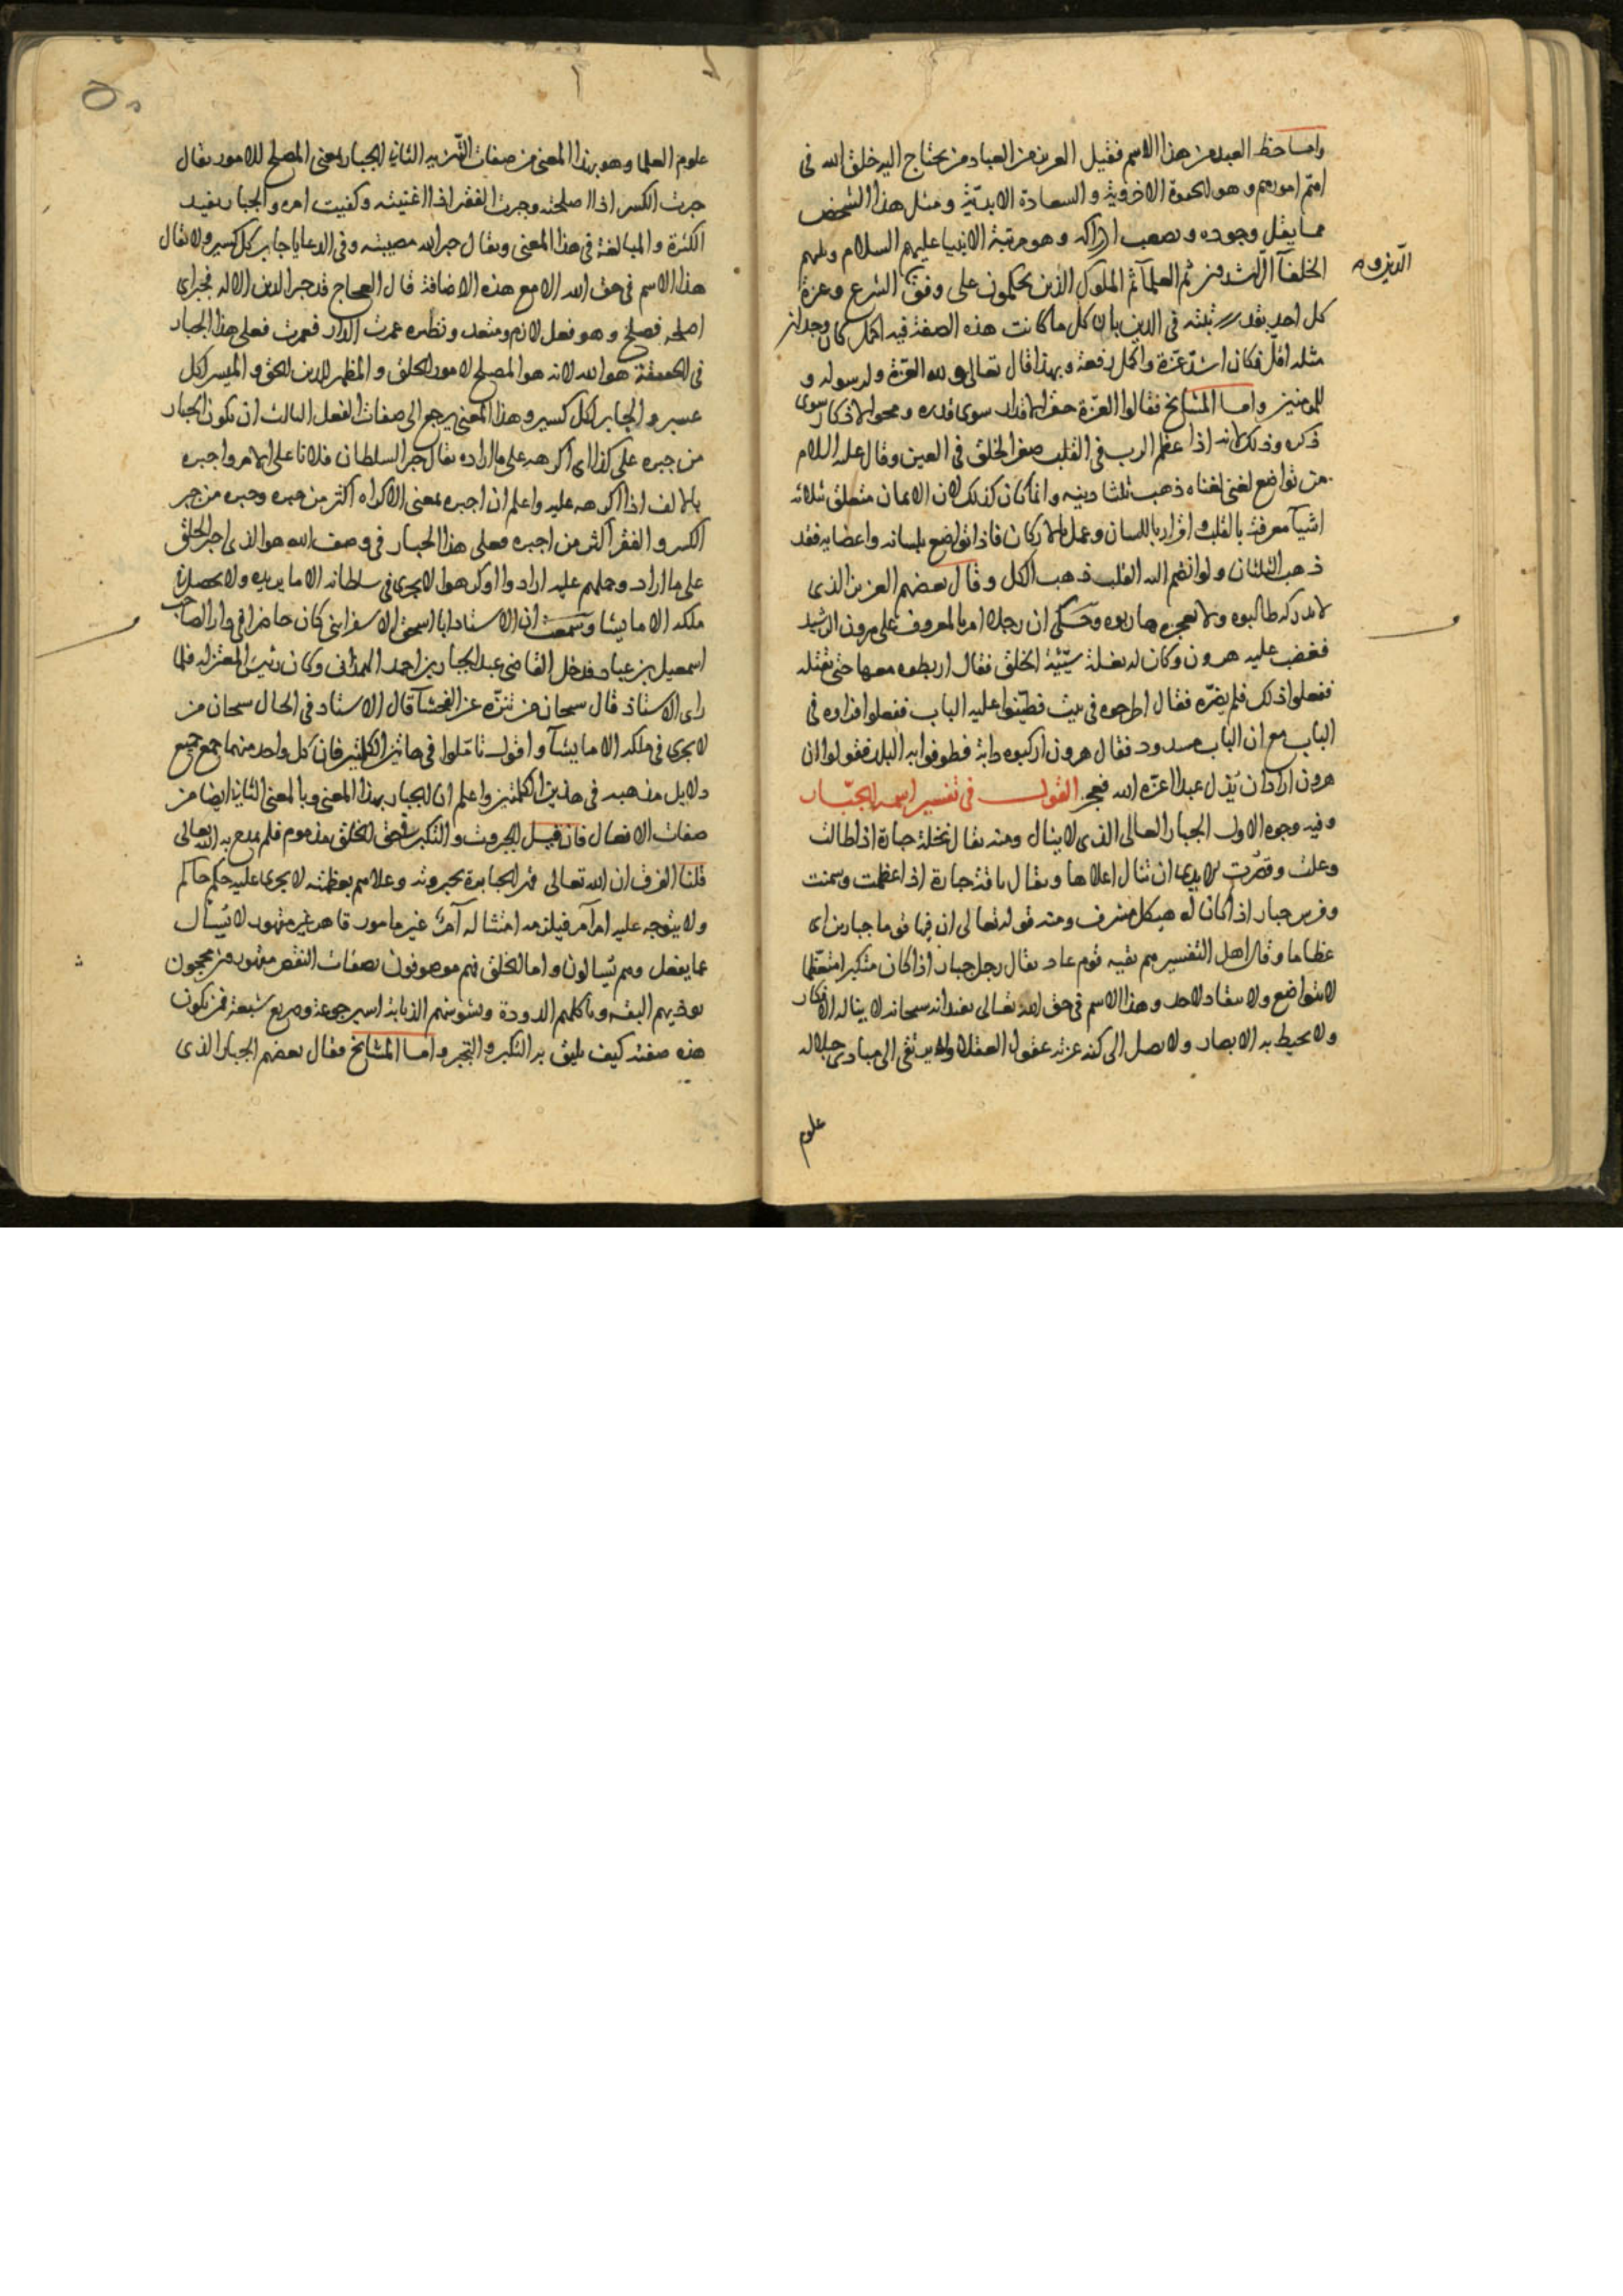 واما حظ العبد من هذا الاسم فقيل العزيز من العباد من يحتاج اليه خلق الله فى
اهم امورهم وهو الحيوة الاخروية والسعادة الابدية ومثل هذا الشخص
مما يقل وجوده ويصعب ادراكه وهو مرتبة الانبيا عليهم السلام ويليهم
الخلفآ الراشدون ثم العلمآ ثم الملوك الذين يحكمون على وفق الشرع وعزة
الذين
كل احد بقدر رتبته فى الدين بان كل ما كانت هذه الصفة فيه اكمل كان وجدان
مثله اقل فكان اشد عزة واكمل رفعة وبهذا قال تعالى ولله العزة ولرسوله و
للمومنين واما المشايخ فقالوا العزة حقر الاقدار سوى قدره ومحو الاذكار سوى
ذكره وذلك لانه اذا عظم الرب فى القلب صغر الخلق فى العين وقال عليه السلام
من تواضع لغنى لغناه ذهب ثلثا دينه وانما كان كذلك لان الايمان متعلق بثلاثه
اشيآ معرفة بالقلب واقرار باللسان وعمل بالاركان فاذا تواضع بلسانه واعضايه فقد
ذهب الثلثان ولو انضم اليه القلب ذهب الكل وقال بعضهم العزيز الذى
لا يدركه طالبوه ولا يعجزه هاربوه وحكى ان رجلا امر بالمعروف على هرون الرشيد
فغضب عليه هرون وكان له بغلة سيئة الخلق فقال اربطوه معها حتى تقتله
ففعلوا ذلك فلم يضره فقال اطرحوه فى بيت فطينوا عليه الباب ففعلوا فراوه فى
الباب مع ان الباب مسدود فقال هرون اركبوه دابة فطوفوا به البلد فقولوا ان
هرون اراد ان يذل عبدا اعزه الله فعجز القول فى تفسير اسمه الجبار
وفيه وجوه الاول الجبار العالى الذى لا ينال ومنه يقال نخلة جبارة اذا طالت
وعلت وقصرت الايدى ان تنال اعلاها ويقال ناقة جبارة اذا عظمت وسمنت
وفرس جبار اذا كان له هيكل مشرف ومنه قوله تعالى ان فيها قوما جبارين اى
عظاما وقال اهل التفسير هم بقيه قوم عاد يقال رجل جبار اذا كان متكبرا متعظما
لا يتواضع ولا ينقاد لاحد وهذا الاسم فى حق الله تعالى يفيد انه سبحانه لا يناله الافكار
ولا يحيط به الابصار ولا يصل الى كنه عزته عقول العقلا ولا يرتقى الى مبادى جلاله
علوم
علوم العلما وهو بهذا المعنى من صفات التنزيه الثانى الجبار بمعنى المصلح للامور يقال
جبرت الكسر اذا اصلحته وجبرت الفقر اذا اغنيته وكفيت امره والجبار يفيد
الكثرة والمبالغة فى هذا المعنى ويقال جبر الله مصيبته وفى الدعا يا جابر كل كسير ولا يقال
هذا الاسم فى حق الله الا مع هذه الاضافة قال العجاج قد جبر الدين الاله فجبر اى
اصلحه فصلح وهو فعل لازم ومتعد ونظيره عمرت الدار فعمرت فعلى هذا الجبار
فى الحقيقة هو الله لانه هو المصلح لامور الخلق والمظهر للدين الحق والميسر لكل
عسير والجابر لكل كسير وهذا المعنى يرجع الى صفات الفعل الثالث ان يكون الجبار
من جبره على كذا اى اكرهه على ما اراده يقال جبر السلطان فلانا على الامر واجبره
بالالف اذا اكرهه عليه واعلم ان اجبره بمعنى الاكراه اكثر من جبره وجبره من جبر
الكسر والفقر اكثر من اجبره فعلى هذا الجبار فى وصف الله هو الذى اجبر الخلق
على ما اراد وحملهم عليه ارادوا او كرهوا لا يجرى فى سلطانه الا ما يريده ولا يحصل فى
ملكه الا ما يشا وسمعت ان الاستاد ابا اسحق الاسفراينى كان حاضرا فى دار الصاحب
اسمعيل بن عباد فدخل القاضى عبد الجبار بن احمد الهمدانى وكان رئيس المعتزله فلما
راى الاستاذ قال سبحان من تنزه عن الفحشآ قال الاستاد فى الحال سبحان من
لا يجرى فى ملكه الا ما يشآ واقول تاملوا فى هاتين الكلمتين فان كل واحد منهما جمع جميع
دلايل مذهبه فى هذين الكلمتين واعلم ان الجبار بهذا المعنى وبالمعنى الثانى ايضا من
صفات الافعال فان قيل الجبروت والتكبر فى حق الخلق مذموم فلم يمدح به الله تعالى
قلنا الفرق ان الله تعالى قهر الجبابرة بجبروته وعلاهم بعظمته لا يجرى عليه حكم حاكم
ولا يتوجه عليه امر آمر فيلزمه امتثاله آمر غير مامور قاهر غير مقهور لا يسأل
عما يفعل وهم يسالون واما الخلق فهم موصوفون بصفات النقص مقهورون محجوبون
توذيهم البقه وتاكلهم الدودة وتشوشهم الذبابة اسير جوعة وصريع شبعة فمن يكون
هذه صفته كيف يليق به التكبر والتجبر واما المشايخ فقال بعضهم الجبار الذى